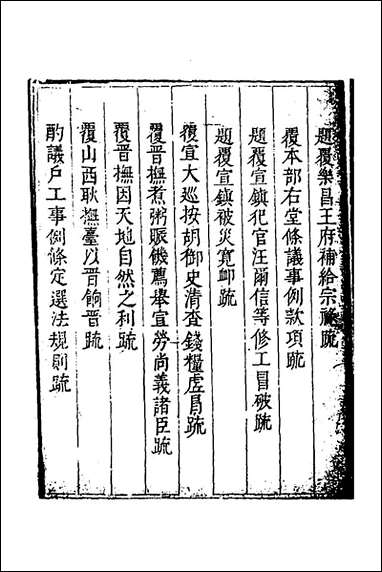 題覆樂昌王府補給宗祿疏
覆本部右堂條議事例款項疏
題覆宣鎮犯官汪爾信等修工冒破疏
題覆宣鎮被災寬卹疏
覆宜大巡按胡御史清查錢糧虛冒疏
覆晉撫煮粥賑饑薦舉宜勞尚義諸臣疏
覆晉撫因天地自然之利疏
覆山西耿撫臺以晉餉晉疏
酌議戶工事例條定選法規則疏